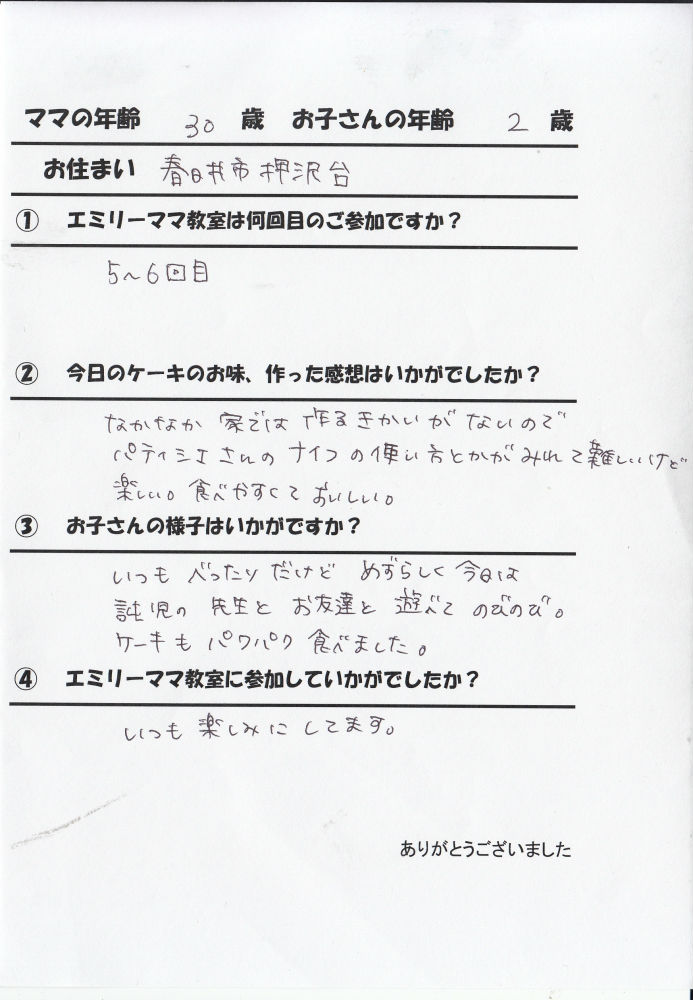 ママの年齢 30 歳 お子さんの年齢 2 歳
お住まい 春日井市押沢台
① エミリーママ教室は何回目のご参加ですか？
5~6回目
② 今日のケーキのお味、作った感想はいかがでしたか？
なかなか 家では 作るきかいが ないので
パティシエさんの ナイフの使い方とかが みれて難しいけど
楽しい。食べやすくて おいしい。
③ お子さんの様子はいかがですか？
いつも べったり だけど めずらしく 今日は
託児の 先生と お友達と 遊べて のびのび。
ケーキも パクパク 食べました。
④ エミリーママ教室に参加していかがでしたか？
いつも 楽しみに してます。
ありがとうございました